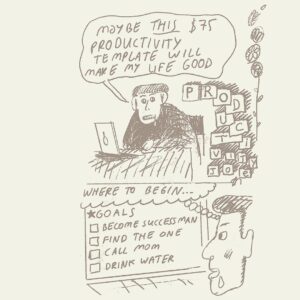 MAYBE THIS $75
PRODUCTIVITY
TEMPLATE WILL
MAKE MY LIFE GOOD
PROD
UCTI
VITY
WHERE TO BEGIN...
*GOALS
BECOME SUCCESSMAN
FIND THE ONE
CALL MOM
DRINK WATER